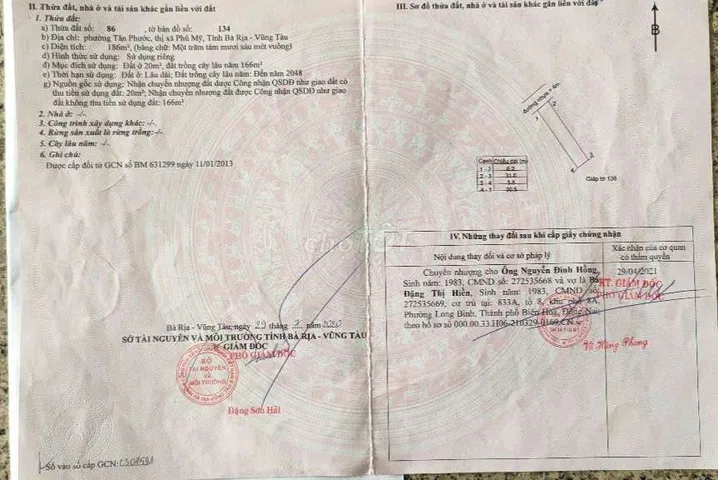 II. Thửa đất, nhà ở và tài sản khác gắn liền với đất
1. Thửa đất:
a) Thửa đất số: 86 , tờ bản đồ số: 134
b) Địa chỉ: phường Tân Phước, thị xã Phú Mỹ, Tỉnh Bà Rịa - Vũng Tàu
c) Diện tích: 186m², (bằng chữ: Một trăm tám mươi sáu mét vuông)
d) Hình thức sử dụng: Sử dụng riêng
đ) Mục đích sử dụng: Đất ở 20m², đất trồng cây lâu năm 166m²
e) Thời hạn sử dụng: Đất ở: Lâu dài; Đất trồng cây lâu năm: Đến năm 2048
g) Nguồn gốc sử dụng: Nhận chuyển nhượng đất được Công nhận QSDĐ như giao đất có
thu tiền sử dụng đất: 20m²; Nhận chuyển nhượng đất được Công nhận QSDĐ như giao
đất không thu tiền sử dụng đất: 166m²
2. Nhà ở: -/-
3. Công trình xây dựng khác: -/-
4. Rừng sản xuất là rừng trồng: -/-
5. Cây lâu năm: -/-
6. Ghi chú:
Được cấp đổi từ GCN số BM 631299 ngày 11/01/2013
Bà Rịa - Vũng Tàu, ngày 29 tháng năm 2020
SỞ TÀI NGUYÊN VÀ MÔI TRƯỜNG TỈNH BÀ RỊA - VŨNG TÀU
GIÁM ĐỐC
PHÓ GIÁM ĐỐC
SỞ
TÀI NGUYÊN
VÀ
MÔI TRƯỜNG
Đặng Sơn Hải
Số vào sổ cấp GCN:
III. Sơ đồ thửa đất, nhà ở và tài sản khác gắn liền với đất
B
đường nhựa > 4m
1
2
3
4
Giáp tờ 138
Cạnh Chiều dài (m)
1 - 2
2 - 3
3 - 4
4 - 1
chợTỐT
IV. Những thay đổi sau khi cấp giấy chứng nhận
Nội dung thay đổi và cơ sở pháp lý
Xác nhận của cơ quan
có thẩm quyền
Chuyển nhượng cho Ông Nguyễn Đình Hồng,
Sinh năm: 1983, CMND số: 272535668 và vợ là Bà
Đặng Thị Hiền, Sinh năm: 1983, CMND số:
272535669, cư trú tại: 833A, tổ 8, khu phố 8A,
Phường Long Bình, Thành phố Biên Hòa, Đồng Nai;
theo hồ sơ số 000.00.33.H06-210329-0169.CN
29/04/2021
KT. GIÁM ĐỐC
PHÓ GIÁM ĐỐC
Hồng Phong